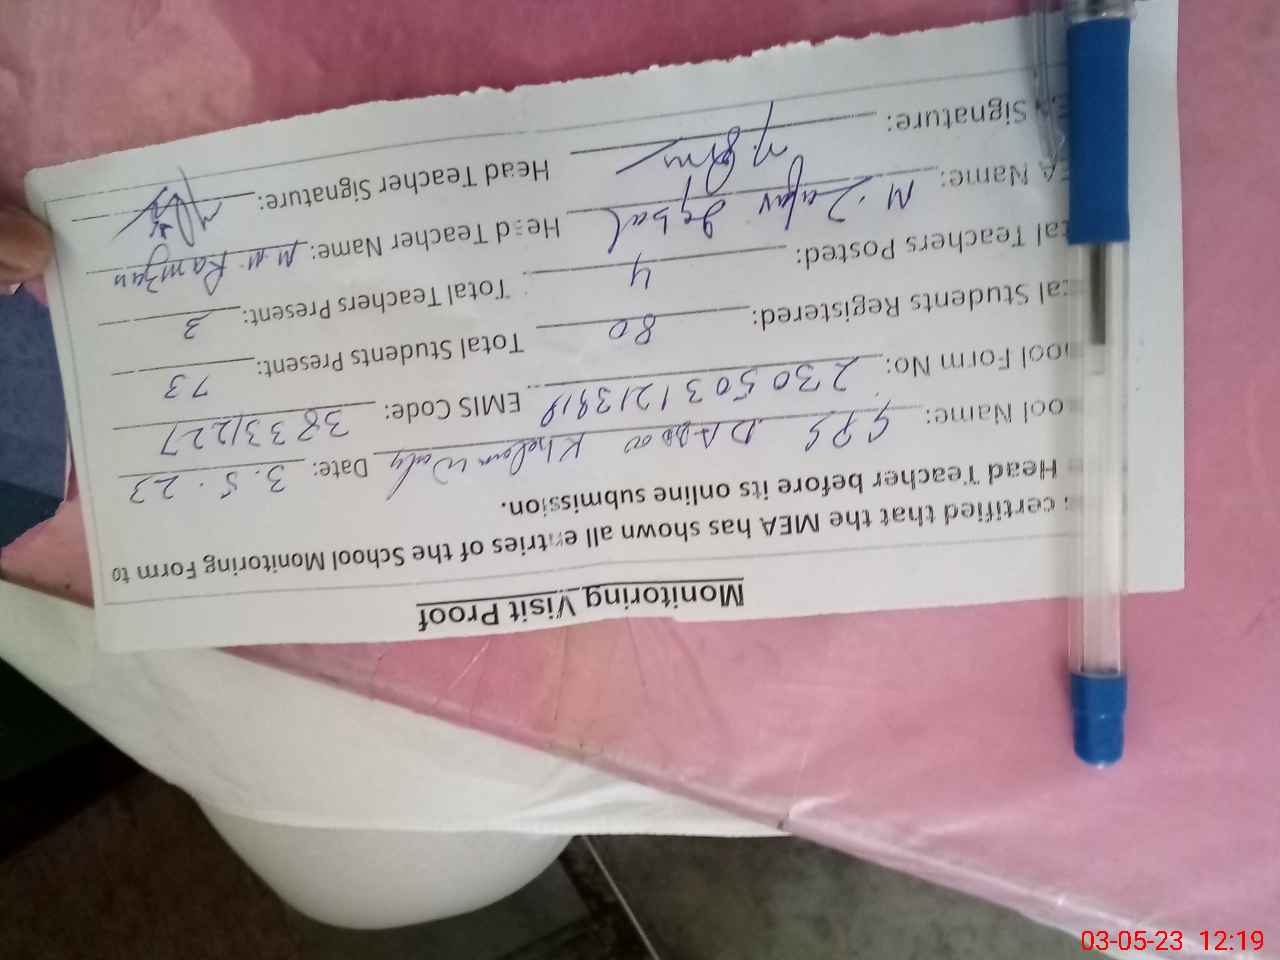 Monitoring Visit Proof
certified that the MEA has shown all entries of the School Monitoring Form to
Head Teacher before its online submission.
ool Name: GPS DADOO Khelan Waly Date: 3.5.23
ool Form No: 230503121391 EMIS Code: 38331227
tal Students Registered: 80 Total Students Present: 73
tal Teachers Posted: 4 Total Teachers Present: 3
EA Name: M. Zafar Iqbal Head Teacher Name: M.M. Ramzan
Signature: Head Teacher Signature:
03-05-23 12:19